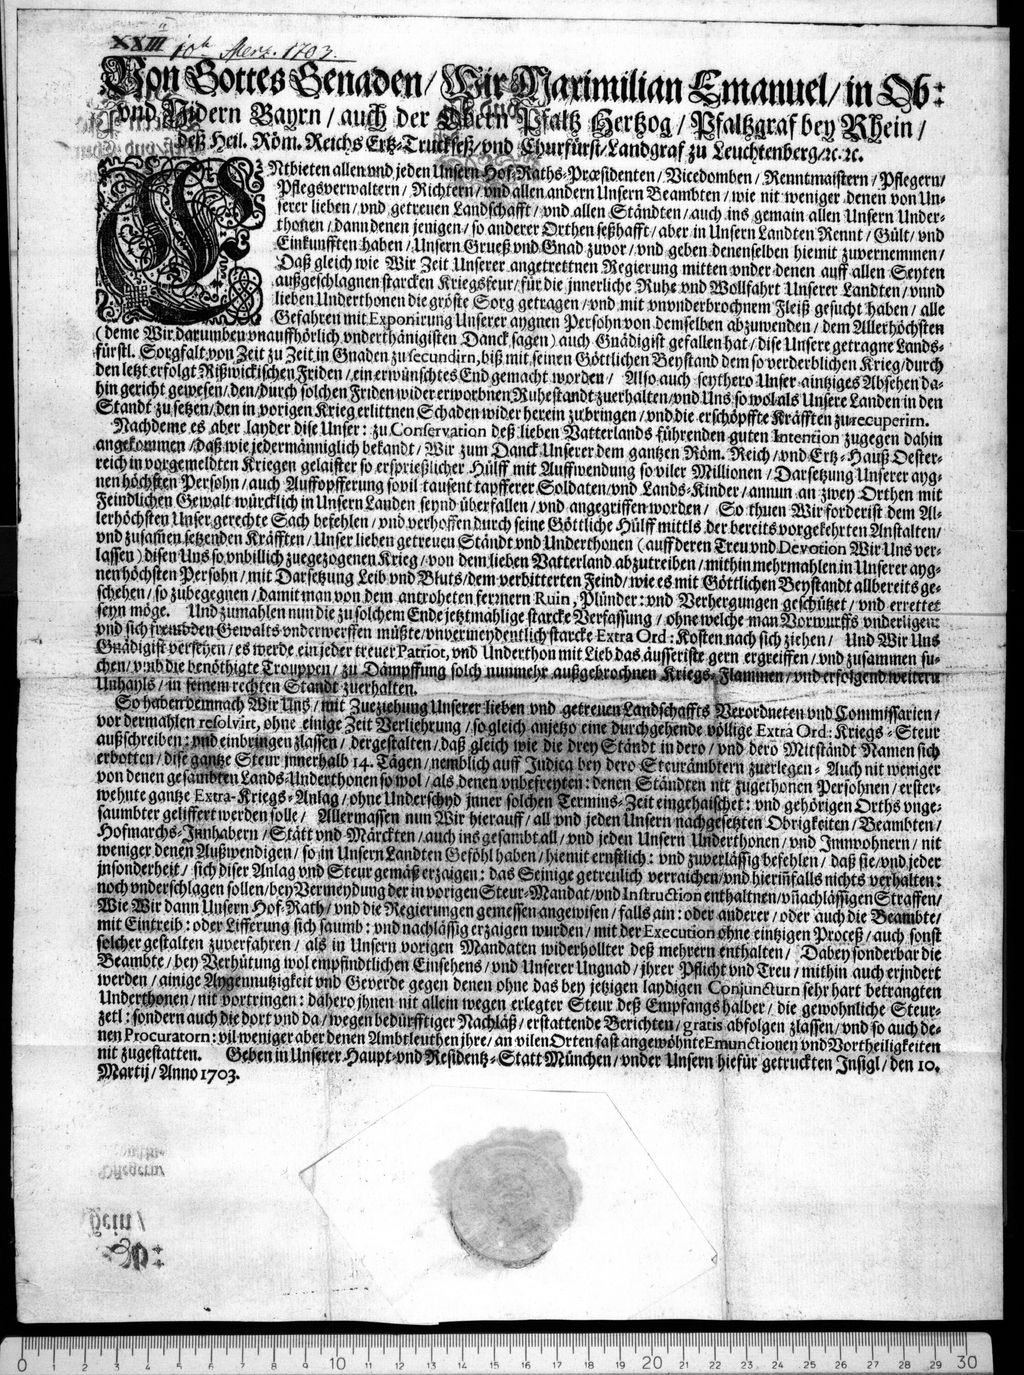 XXIII 10t. Merz. 1703.
Von Gottes Genaden/ Wir Maximilian Emanuel/ in Ob-
vnd Nidern Bayrn/ auch der Obern Pfaltz Hertzog/ Pfaltzgraf bey Rhein/
deß Heil. Röm. Reichs Ertz-Truckseß/ vnd Churfürst/ Landgraf zu Leuchtenberg/ ꝛc. ꝛc.
ENtbieten allen vnd jeden Unsern Hof-Raths-Præsidenten/ Vicedomben/ Renntmaistern/ Pflegern/
Pflegsverwaltern/ Richtern/ vnd allen andern Unsern Beambten/ wie nit weniger denen von Un-
serer lieben/ vnd getreuen Landschafft/ vnd allen Ständten/ auch ins gemain allen Unsern Under-
thonen/ dann denen jenigen/ so anderer Orthen seßhafft/ aber in Unsern Landten Rennt/ Gült/ vnd
Einkunfften haben/ Unsern Grueß vnd Gnad zuvor/ vnd geben denenselben hiemit zuvernemmen/
Daß gleich wie Wir Zeit Unserer angetrettnen Regierung mitten vnder denen auff allen Seyten
außgeschlagnen starcken Kriegsfeur/ für die jnnerliche Ruhe vnd Wollfahrt Unserer Landten/ vnnd
lieben Underthonen die gröste Sorg getragen/ vnd mit vnvnderbrochnem Fleiß gesucht haben/ alle
Gefahren mit Exponirung Unserer aygnen Persohn von demselben abzuwenden/ dem Allerhöchsten
(deme Wir darumben vnauffhörlich vnderthänigisten Danck sagen) auch Gnädigist gefallen hat/ dise Unsere getragne Lands-
fürstl. Sorgfalt von Zeit zu Zeit in Gnaden zu secundirn, biß mit seinen Göttlichen Beystand dem so verderblichen Krieg/ durch
den letzt erfolgt Rißwickischen Friden/ ein erwünschtes End gemacht worden/ Also auch seythero Unser aintziges Absehen da-
hin gericht gewesen/ den/ durch solchen Friden wider erworbnen Ruhestandt zuerhalten/ vnd Uns so wol als Unsere Landen in den
Standt zu setzen/ den in vorigen Krieg erlittnen Schaden wider herein zubringen/ vnd die erschöpffte Kräfften zu recuperirn.
Nachdeme es aber layder dise Unser: zu Conservation deß lieben Vatterlands führenden guten Intention zugegen dahin
angekommen/ daß wie jedermänniglich bekandt/ Wir zum Danck Unserer dem gantzen Röm. Reich/ vnd Ertz-Hauß Oester-
reich in vorgemeldten Kriegen gelaister so ersprießlicher Hülff mit Auffwendung so viler Millionen/ Darsetzung Unserer ayg-
nen höchsten Persohn/ auch Auffopfferung sovil tausent tapfferer Soldaten/ vnd Lands-Kinder/ annun an zwey Orthen mit
Feindlichen Gewalt würcklich in Unsern Landen seynd überfallen/ vnd angegriffen worden/ So thuen Wir forderist dem Al-
lerhöchsten Unser gerechte Sach befehlen/ vnd verhoffen durch seine Göttliche Hülff mittls der bereits vorgekehrten Anstalten/
vnd zusamen setzenden Kräfften/ Unser lieben getreuen Ständt vnd Underthonen (auff deren Treu vnd Devotion Wir Uns ver-
lassen) disen Uns so vnbillich zuegezogenen Krieg/ von dem lieben Vatterland abzutreiben/ mithin mehrmahlen in Unserer ayg-
nen höchsten Persohn/ mit Darsetzung Leib vnd Bluts/ dem verbitterten Feind/ wie es mit Göttlichen Beystandt allbereits ge-
schehen/ so zubegegnen/ damit man von dem antroheten fernern Ruin, Plünder: vnd Verhergungen geschützet/ vnd errettet
seyn möge. Und zumahlen nun die zu solchem Ende jetztmahlige starcke Verfassung/ ohne welche man Vorwurffs vnderligen:
vnd sich frembden Gewalts vnderwerffen müßte/ vnvermeydentlich starcke Extra Ord: Kosten nach sich ziehen/ Und Wir Uns
Gnädigist versehen/ es werde ein jeder treuer Patriot, vnd Underthon mit Lieb das äusseriste gern ergreiffen/ vnd zusammen su-
chen/ vmb die benöthigte Trouppen/ zu Dämpffung solch nunmehr außgebrochnen Kriegs-Flammen/ vnd erfolgend weitern
Unhayls/ in seinem rechten Standt zuerhalten.
So haben demnach Wir Uns/ mit Zueziehung Unserer lieben vnd getreuen Landschaffts Verordneten vnd Commissarien/
vor dermahlen resolvirt, ohne einige Zeit Verliehrung/ so gleich anjetzo eine durchgehende völlige Extra Ord: Kriegs-Steur
außschreiben: vnd einbringen zlassen/ dergestalten/ daß gleich wie die drey Ständt in dero/ vnd dero Mitständt Namen sich
erbotten/ dise gantze Steur jnnerhalb 14. Tägen/ nemblich auff Judica bey dero Steurämbtern zuerlegen- Auch nit weniger
von denen gesambten Lands-Underthonen so wol/ als denen vnbefreyten: denen Ständten nit zugethonen Persohnen/ erster-
wehnte gantze Extra-Kriegs-Anlag/ ohne Underschyd jnner solchen Termins-Zeit eingehaischet: vnd gehörigen Orths vnge-
saumbter geliffert werden solle/ Allermassen nun Wir hierauff/ all vnd jeden Unsern nachgesetzten Obrigkeiten/ Beambten/
Hofmarchs-Innhabern/ Stätt vnd Märckten/ auch ins gesambt all/ vnd jeden Unsern Underthonen/ vnd Innwohnern/ nit
weniger denen Außwendigen/ so in Unsern Landten Geföhl haben/ hiemit ernstlich: vnd zuverlässig befehlen/ daß sie/ vnd jeder
jnsonderheit/ sich diser Anlag vnd Steur gemäß erzaigen: das Seinige getreulich verraichen/ vnd hierinfalls nichts verhalten:
noch vnderschlagen sollen/ bey Vermeydung der in vorigen Steur-Mandat/ vnd Instruction enthaltnen/ vnachlässigen Straffen/
Wie Wir dann Unsern Hof-Rath/ vnd die Regierungen gemessen angewisen/ falls ain: oder anderer/ oder auch die Beambte/
mit Eintreib: oder Lifferung sich saumb: vnd nachlässig erzaigen wurden/ mit der Execution ohne eintzigen Proceß/ auch sonst
solcher gestalten zuverfahren/ als in Unsern vorigen Mandaten widerhollter deß mehrern enthalten/ Dabey sonderbar die
Beambte/ bey Verhütung wol empfindtlichen Einsehens/ vnd Unserer Ungnad/ jhrer Pflicht vnd Treu/ mithin auch erjndert
werden/ ainige Aygennutzigkeit vnd Geverde gegen denen ohne das bey jetzigen laydigen Conjuncturn sehr hart betrangten
Underthonen/ nit vortringen: dahero jhnen nit allein wegen erlegter Steur deß Empfangs halber/ die gewohnliche Steur-
zetl: sondern auch die dort vnd da/ wegen bedürfftiger Nachläß/ erstattende Berichten/ gratis abfolgen zlassen/ vnd so auch de-
nen Procuratorn: vil weniger aber denen Ambtleuthen jhre/ an vilen Orten fast angewöhnte Emunctionen vnd Vortheiligkeiten
nit zugestatten. Geben in Unserer Haupt-vnd Residentz-Statt München/ vnder Unsern hiefür getruckten Insigl/ den 10.
Martij/ Anno 1703.
0 1 2 3 4 5 6 7 8 9 10 11 12 13 14 15 16 17 18 19 20 21 22 23 24 25 26 27 28 29 30